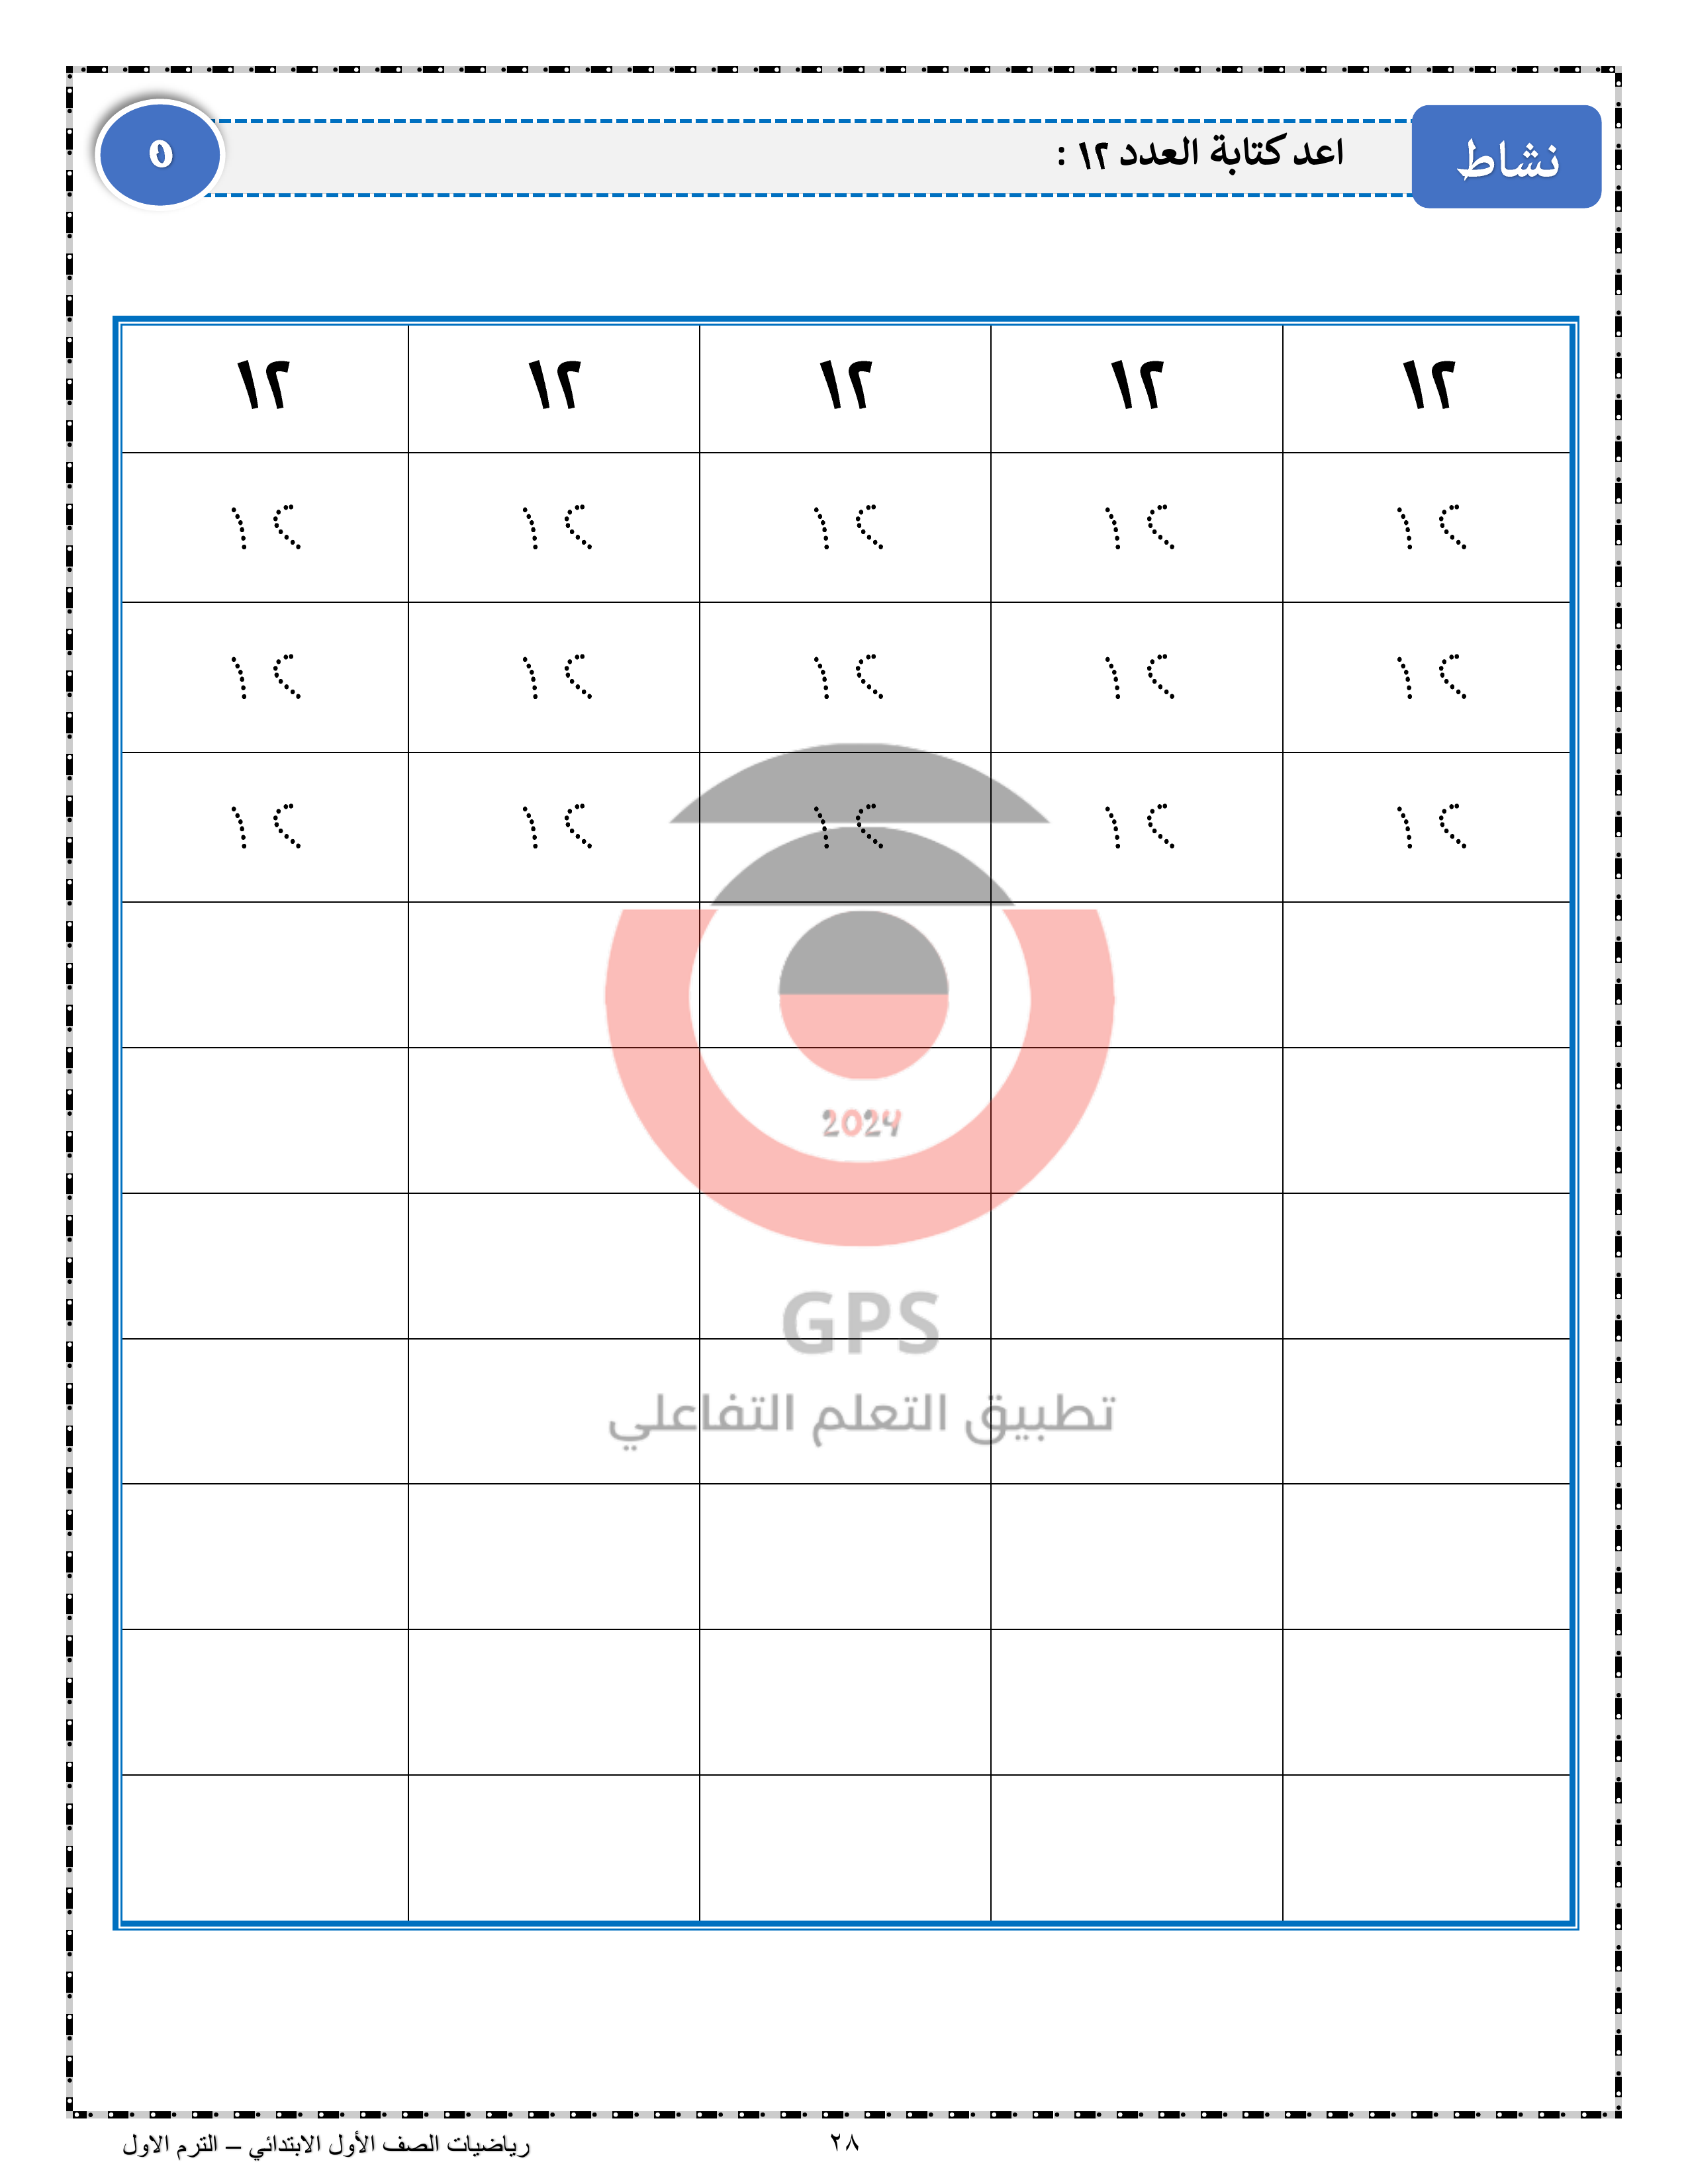 نشاط
اعد كتابة العدد ١٢ :
٥
١٢ ١٢ ١٢ ١٢ ١٢
١٢ ١٢ ١٢ ١٢ ١٢
١٢ ١٢ ١٢ ١٢ ١٢
١٢ ١٢ ١٢ ١٢ ١٢
2024
GPS
تطبيق التعلم التفاعلي
٢٨
رياضيات الصف الأول الابتدائي – الترم الاول